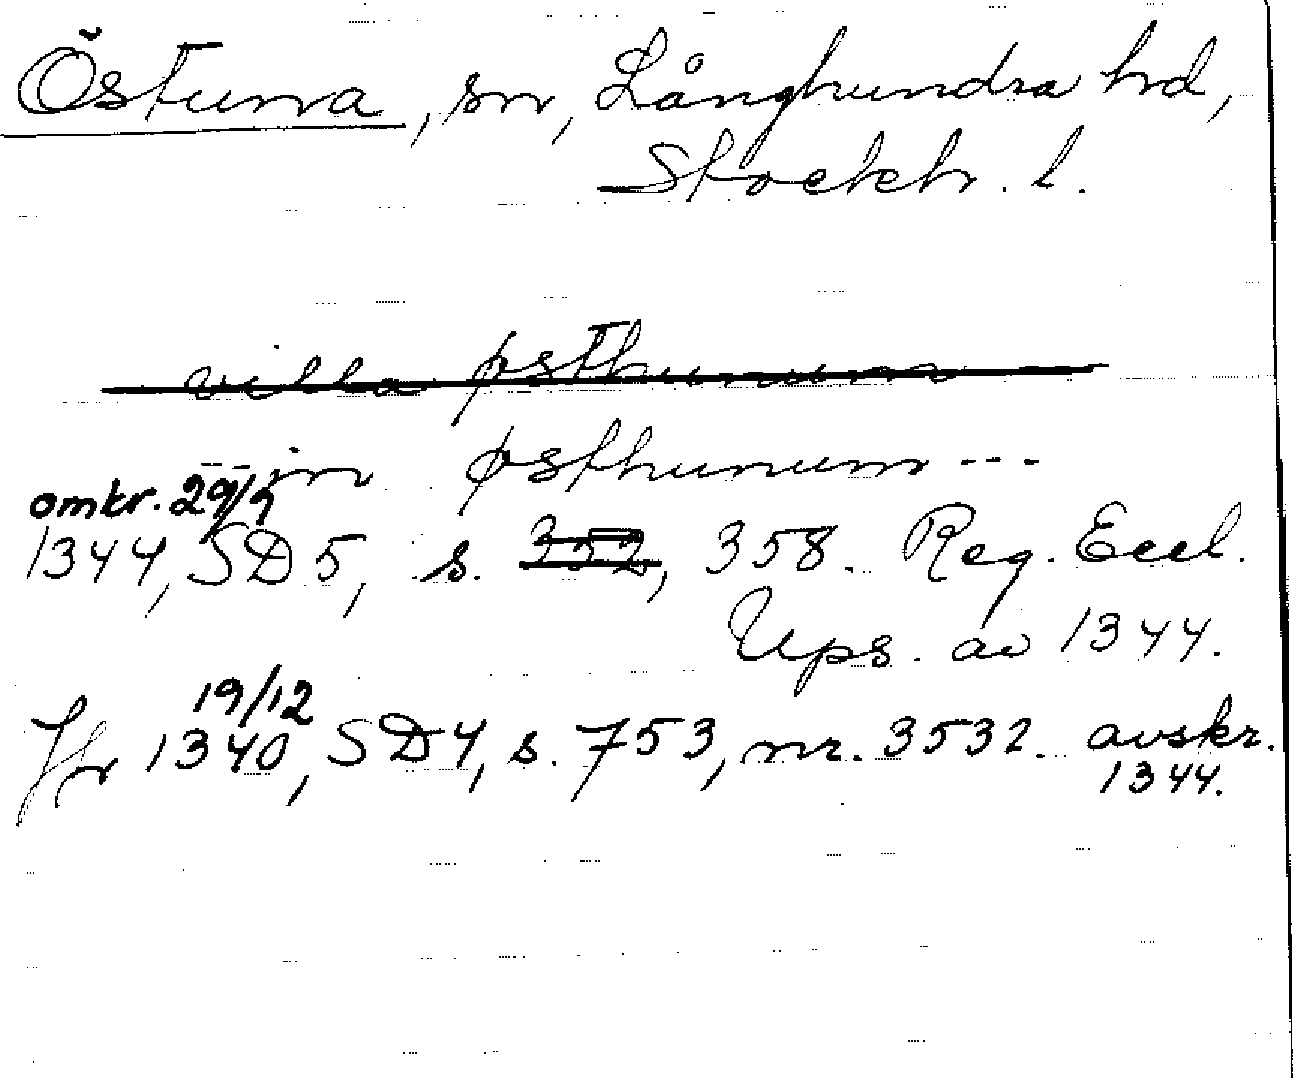 Östuna, sn, Långhundra hd,
Stockh. l.
villa østhununa
in østhunum ---
omkr. 29/9
1344, SD 5, s. 352, 358. Reg. Eccl.
Ups. av 1344.
19/12
Jfr 1340, SD 4, s. 753, nr. 3532. avskr.
1344.